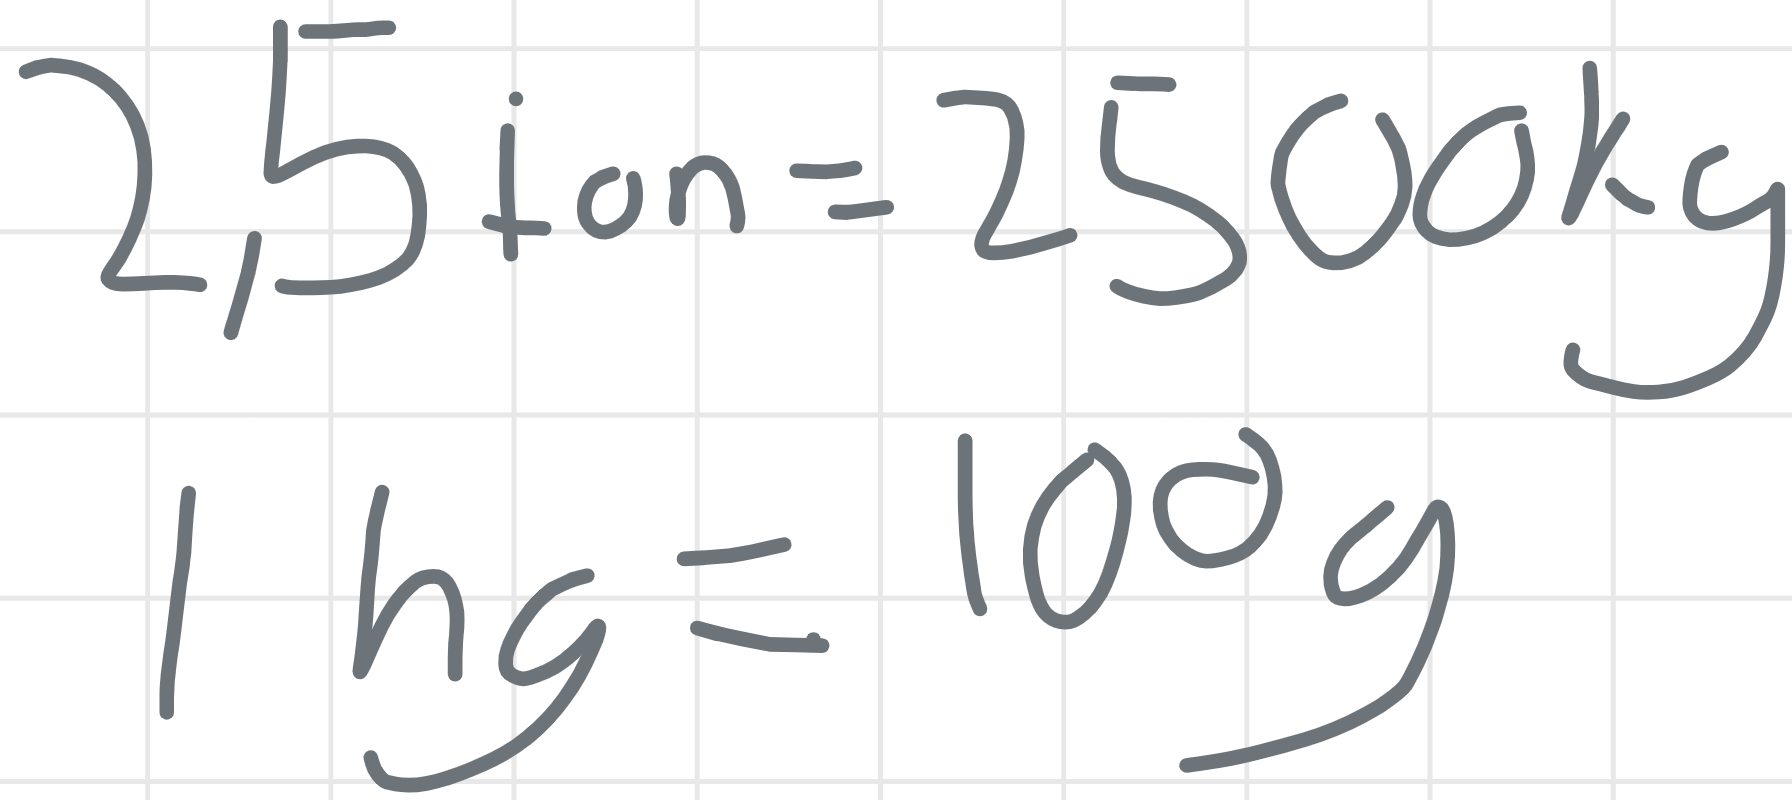 2,5 ton = 2500kg
1 hg = 100 g